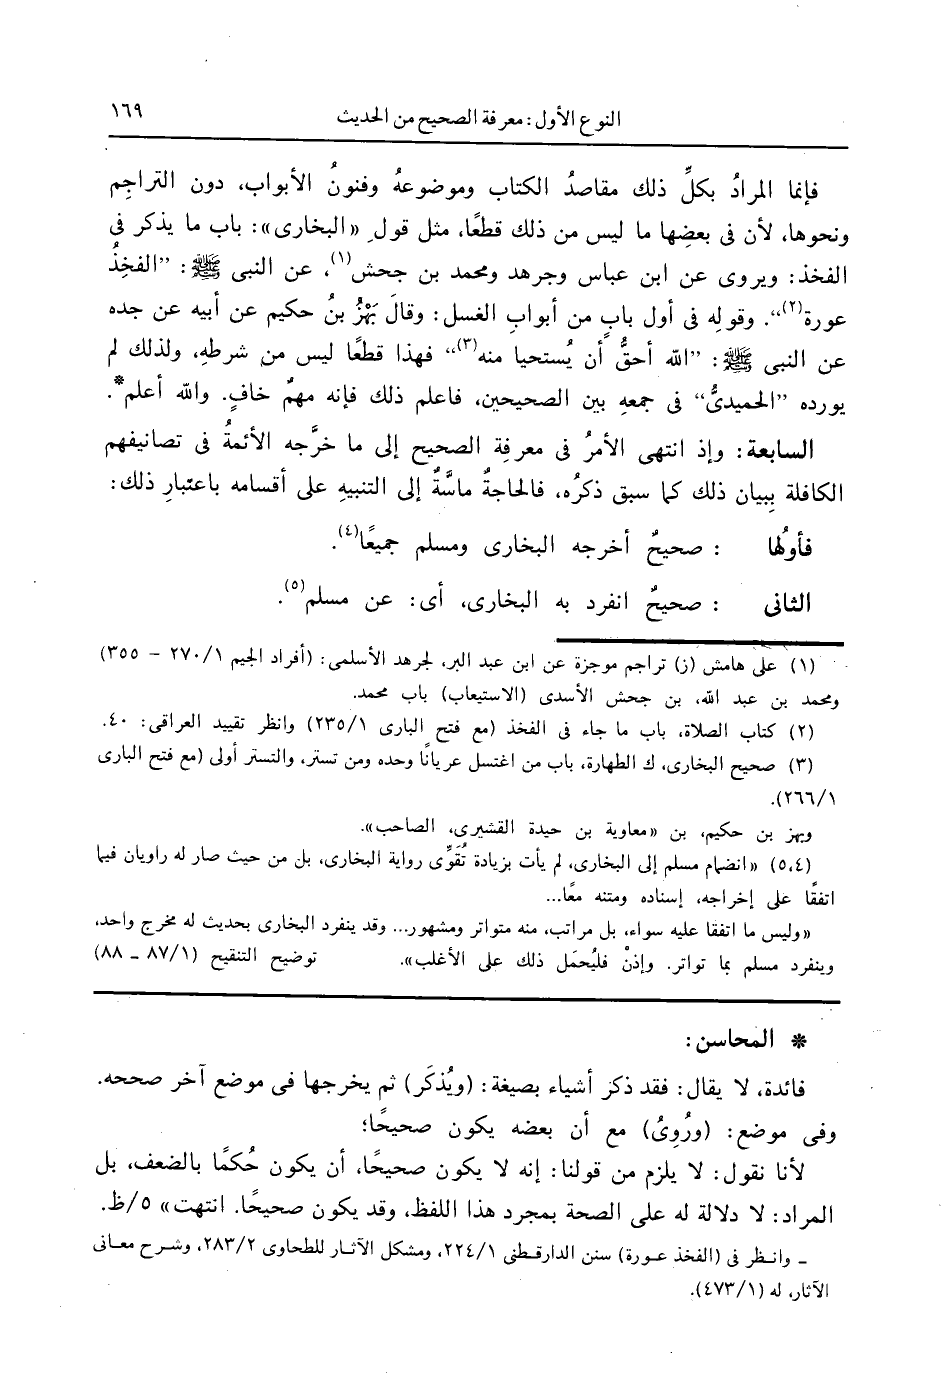 النوع الأول: معرفة الصحيح من الحديث ١٦٩
فإنما المرادُ بكلِّ ذلك مقاصدُ الكتاب وموضوعهُ وفنونُ الأبواب، دون التراجم
ونحوها، لأن فى بعضِها ما ليس من ذلك قطعًا، مثل قول «البخارى»: باب ما يذكر فى
الفخذ: ويروى عن ابن عباس وجرهد ومحمد بن جحش(١)، عن النبى ﷺ: "الفخِذُ
عورة(٢)". وقولهِ فى أول بابٍ من أبوابِ الغسل: وقالَ بَهْزُ بنُ حكيم عن أبيه عن جده
عن النبى ﷺ: "الله أحقُّ أن يُستحيا منه(٣)" فهذا قطعًا ليس من شرطهِ، ولذلك لم
يورده "الحميدىُّ" فى جمعهِ بين الصحيحين، فاعلم ذلك فإنه مهمٌ خافٍ. والله أعلم*.
السابعة: وإذ انتهى الأمرُ فى معرفةِ الصحيح إلى ما خرَّجه الأئمةُ فى تصانيفهم
الكافلة بِبيان ذلك كما سبق ذكرُه، فالحاجةٌ ماسَّةٌ إلى التنبيهِ على أقسامه باعتبارِ ذلك:
فأولُها : صحيحٌ أخرجه البخارى ومسلم جميعًا(٤).
الثانى : صحيحٌ انفرد به البخارى، أى: عن مسلم(٥).
(١) على هامش (ز) تراجم موجزة عن ابن عبد البر، لجرهد الأسلمى: (أفراد الجيم ٢٧٠/١ – ٣٥٥)
ومحمد بن عبد الله، بن جحش الأسدى (الاستيعاب) باب محمد.
(٢) كتاب الصلاة، باب ما جاء فى الفخذ (مع فتح البارى ٢٣٥/١) وانظر تقييد العراقى: ٤٠.
(٣) صحيح البخارى، ك الطهارة، باب من اغتسل عريانًا وحده ومن تستر، والتستر أولى (مع فتح البارى
٢٦٦/١).
وبهز بن حكيم، بن «معاوية بن حيدة القشيرى، الصاحب».
(٥،٤) «انضمام مسلم إلى البخارى، لم يأت بزيادة تُقَوِّى رواية البخارى، بل من حيث صار له راويان فيما
اتفقا على إخراجه، إسناده ومتنه معًا...
«وليس ما اتفقا عليه سواء، بل مراتب، منه متواتر ومشهور... وقد ينفرد البخارى بحديث له مخرج واحد،
وينفرد مسلم بما تواتر. وإذنْ فليُحمَل ذلك على الأغلب». توضيح التنقيح (٨٧/١ – ٨٨)
* المحاسن:
فائدة، لا يقال: فقد ذكر أشياء بصيغة: (ويُذكَر) ثم يخرجها فى موضع آخر صححه.
وفى موضع: (ورُوِىُ) مع أن بعضه يكون صحيحًا؛
لأنا نقول: لا يلزم من قولنا: إنه لا يكون صحيحًا، أن يكون حُكمًا بالضعف، بل
المراد: لا دلالة له على الصحة بمجرد هذا اللفظ، وقد يكون صحيحًا. انتهت» ٥/ظ.
ـ وانظر فى (الفخذ عورة) سنن الدارقطنى ٢٢٤/١، ومشكل الآثار للطحاوى ٢٨٣/٢، وشرح معانى
الآثار، له (٤٧٣/١).